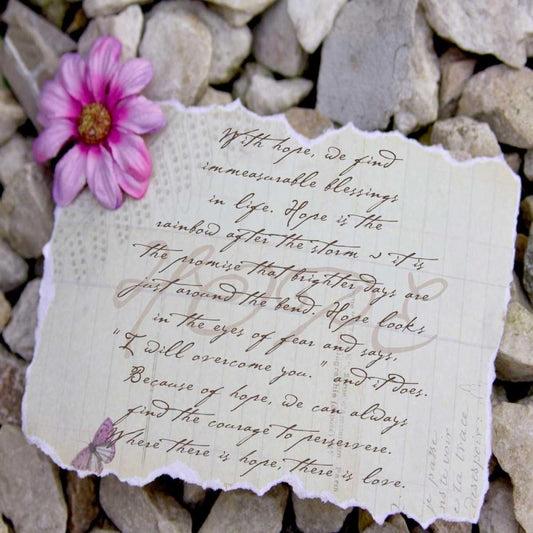 With hope, we find
immeasurable blessings
in life. Hope is the
rainbow after the storm ~ it is
the promise that brighter days are
just around the bend. Hope looks
in the eyes of fear and says,
"I will overcome you." and it does.
Because of hope, we can always
find the courage to perservere.
Where there is hope, there is love.
hope